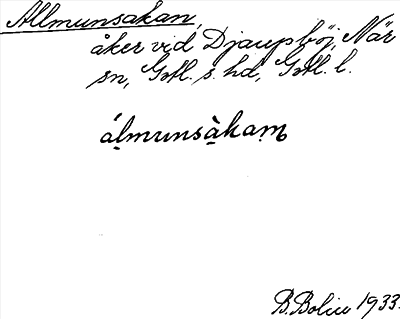 Allmunsakan,
åker vid Djaupböj, När
sn, Gotl. s. hd, Gotl. l.
álmunsàkam
B. Bolin 1933.